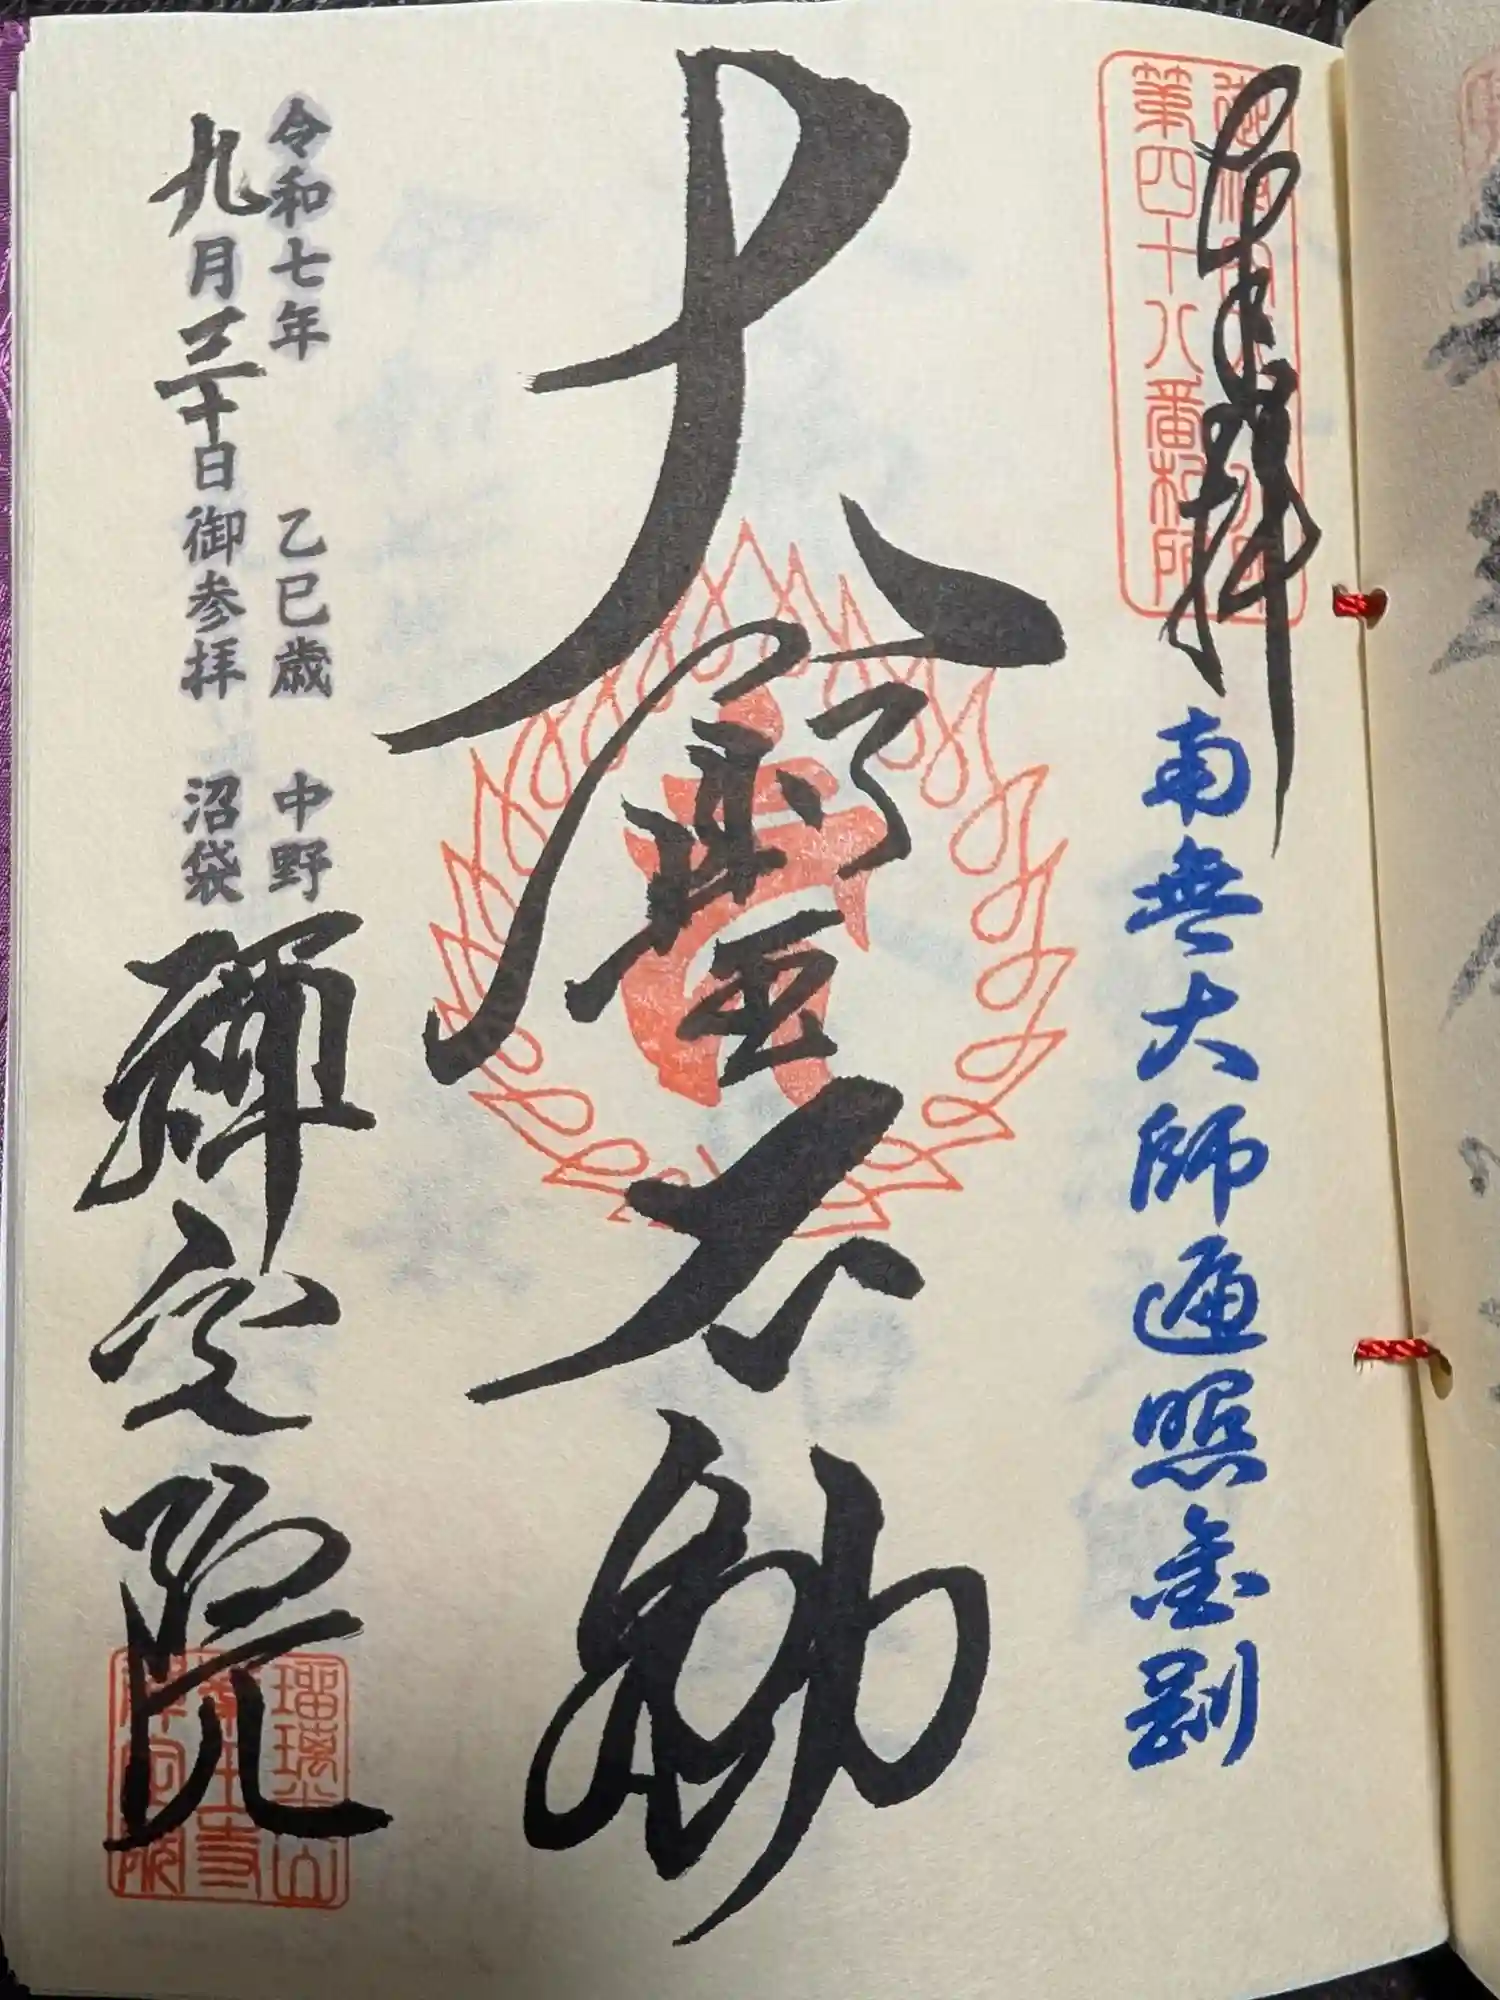 奉拝
第四十八番札所
南無大師遍照金剛
大聖不動
令和七年 乙巳歳 中野
九月三十日御参拝 沼袋
禅定院
瑠璃光山
薬王寺
禅定院